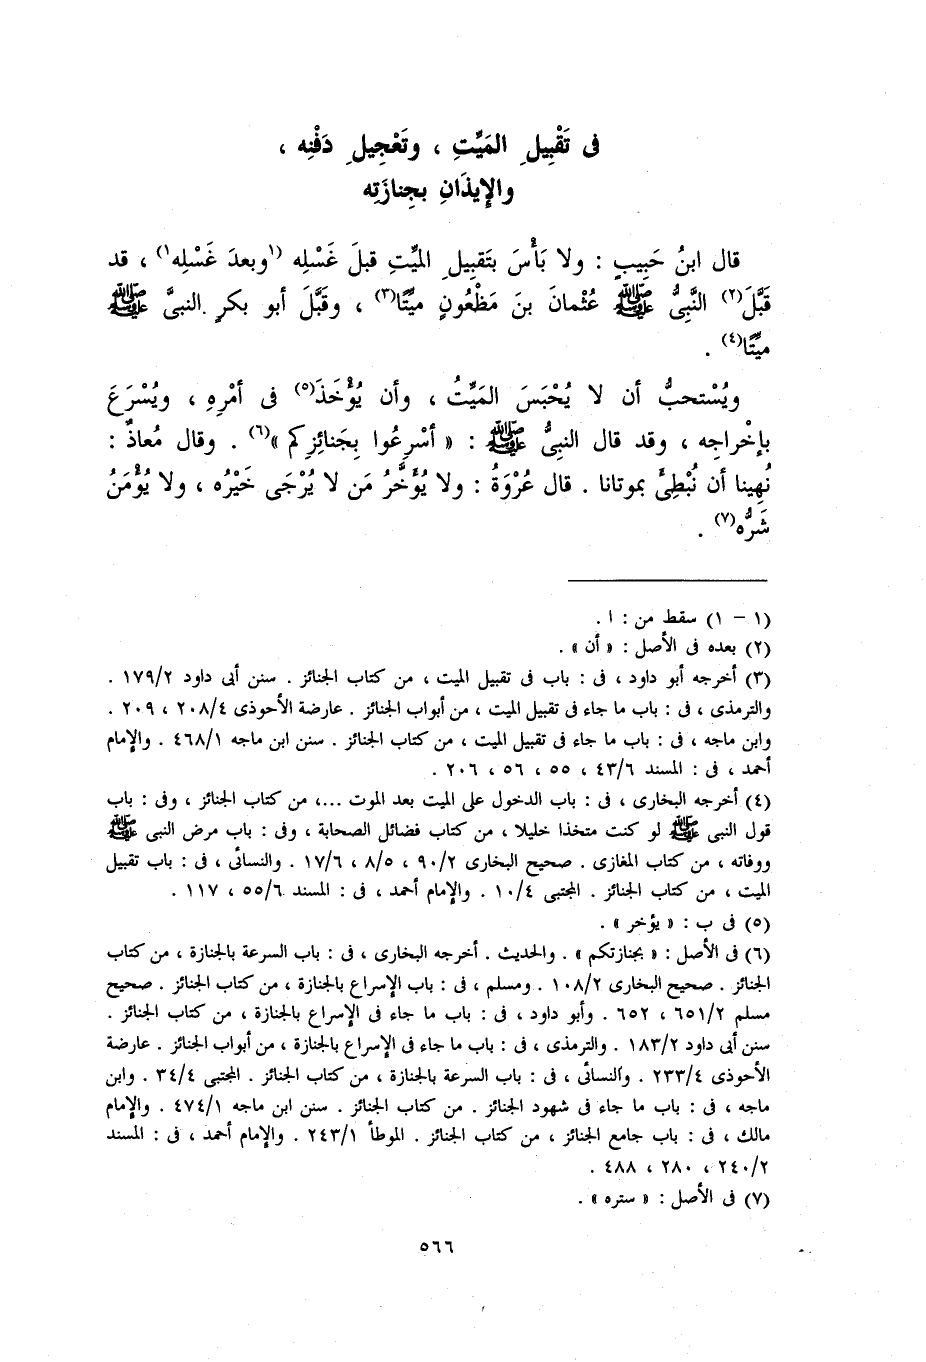 فى تَقْبِيلِ المَيِّتِ ، وتَعْجِيلِ دَفْنِه ،
والإِيذَانِ بجِنازَتِه
قال ابنُ حَبِيبٍ : ولا بَأْسَ بتَقبِيلِ الميِّتِ قبلَ غَسْلِه (١وبعدَ غَسْلِه١) ، قد
قَبَّلَ(٢) النَّبِىُّ ﷺ عُثْمانَ بنَ مَظْعُونٍ ميِّتًا(٣) ، وقَبَّلَ أبو بكرٍ النبىَّ ﷺ
ميِّتًا(٤) .
ويُسْتحبُّ أن لا يُحْبَسَ المَيِّتُ ، وأن يُؤْخَذَ(٥) فى أمْرِهِ ، ويُسْرَعَ
بإخْراجِه ، وقد قال النبىُّ ﷺ : « أسْرِعُوا بِجَنائِزِكم »(٦) . وقال مُعاذٌ :
نُهِينا أن نُبْطِئَ بموتانا . قال عُرْوَةُ : ولا يُؤَخَّرُ مَن لا يُرْجَى خَيْرُه ، ولا يُؤْمَنُ
شَرُّه(٧) .
(١ - ١) سقط من : ا .
(٢) بعده فى الأصل : « أن » .
(٣) أخرجه أبو داود ، فى : باب فى تقبيل الميت ، من كتاب الجنائز . سنن أبى داود ١٧٩/٢ .
والترمذى ، فى : باب ما جاء فى تقبيل الميت ، من أبواب الجنائز . عارضة الأحوذى ٢٠٨/٤ ، ٢٠٩ .
وابن ماجه ، فى : باب ما جاء فى تقبيل الميت ، من كتاب الجنائز . سنن ابن ماجه ٤٦٨/١ . والإمام
أحمد ، فى : المسند ٤٣/٦ ، ٥٥ ، ٥٦ ، ٢٠٦ .
(٤) أخرجه البخارى ، فى : باب الدخول على الميت بعد الموت ...، من كتاب الجنائز ، وفى : باب
قول النبى ﷺ لو كنت متخذا خليلا ، من كتاب فضائل الصحابة ، وفى : باب مرض النبى ﷺ
ووفاته ، من كتاب المغازى . صحيح البخارى ٩٠/٢ ، ٨/٥ ، ١٧/٦ . والنسائى ، فى : باب تقبيل
الميت ، من كتاب الجنائز . المجتبى ١٠/٤ . والإمام أحمد ، فى : المسند ٥٥/٦ ، ١١٧ .
(٥) فى ب : « يؤخر » .
(٦) فى الأصل : « بجنازتكم » . والحديث . أخرجه البخارى ، فى : باب السرعة بالجنازة ، من كتاب
الجنائز . صحيح البخارى ١٠٨/٢ . ومسلم ، فى : باب الإسراع بالجنازة ، من كتاب الجنائز . صحيح
مسلم ٦٥١/٢ ، ٦٥٢ . وأبو داود ، فى : باب ما جاء فى الإسراع بالجنازة ، من كتاب الجنائز .
سنن أبى داود ١٨٣/٢ . والترمذى ، فى : باب ما جاء فى الإسراع بالجنازة ، من أبواب الجنائز . عارضة
الأحوذى ٢٣٣/٤ . والنسائى ، فى : باب السرعة بالجنازة ، من كتاب الجنائز . المجتبى ٣٤/٤ . وابن
ماجه ، فى : باب ما جاء فى شهود الجنائز . من كتاب الجنائز . سنن ابن ماجه ٤٧٤/١ . والإمام
مالك ، فى : باب جامع الجنائز ، من كتاب الجنائز . الموطأ ٢٤٣/١ . والإمام أحمد ، فى : المسند
٢٤٠/٢ ، ٢٨٠ ، ٤٨٨ .
(٧) فى الأصل : « ستره » .
٥٦٦